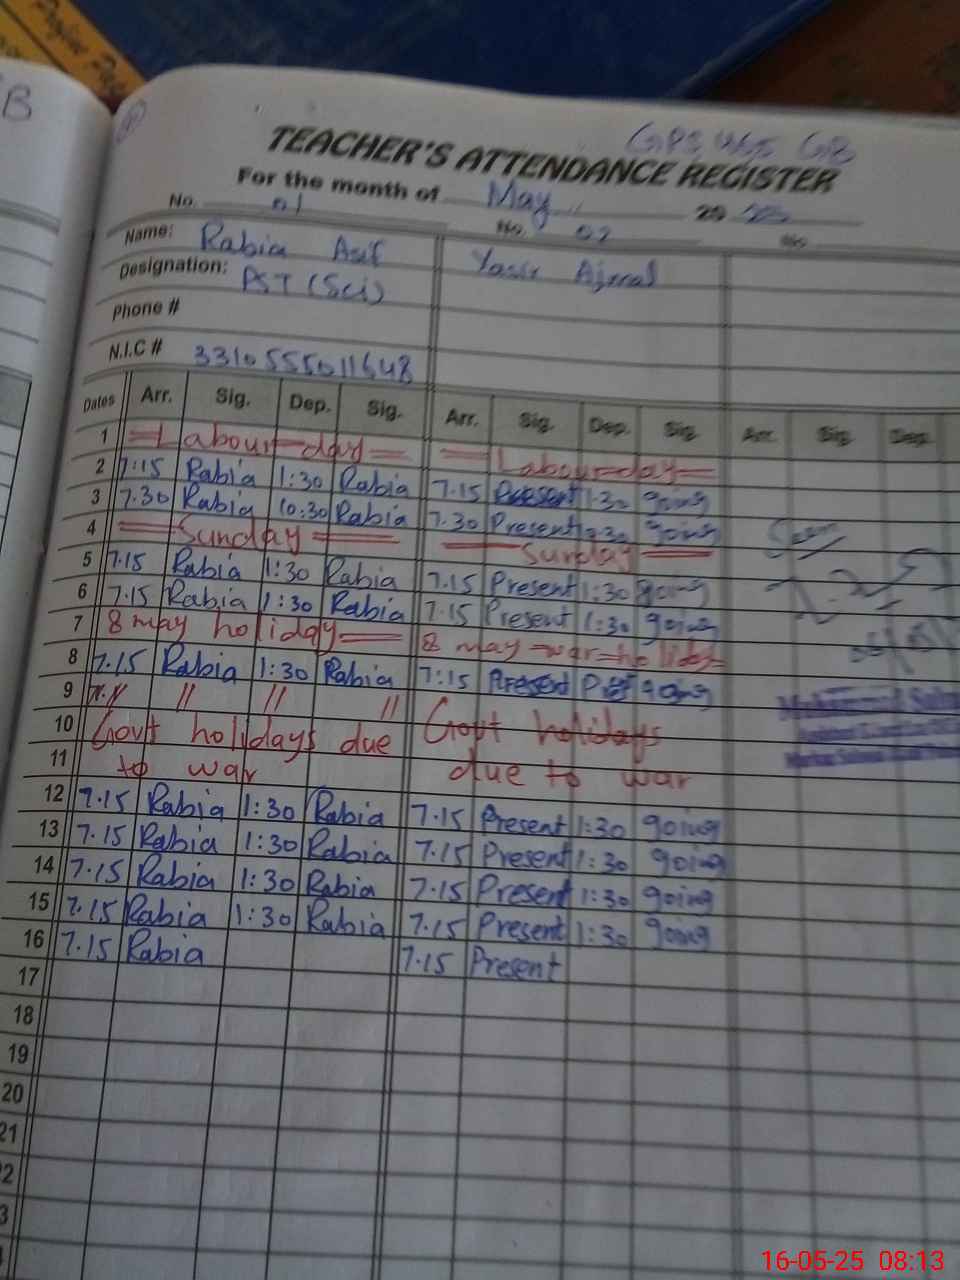 B
GPS 465 GB
TEACHER'S ATTENDANCE REGISTER
For the month of May 20 25
No. 01 No. 02 No.
Name: Rabia Asif Yasir Ajmal
Designation: PST (Sci)
Phone #
N.I.C # 3310555011648
Dates Arr. Sig. Dep. Sig. Arr. Sig. Dep. Sig. Arr. Sig. Dep.
1 Labour day Labour day
2 7:15 Rabia 1:30 Rabia 7.15 Present 1:30 going
3 7.30 Rabia 10:30 Rabia 7.30 Present going
4 Sunday Sunday
Seen
5 7.15 Rabia 1:30 Rabia 7.15 Present 1:30 going
6 7.15 Rabia 1:30 Rabia 7.15 Present 1:30 going
7 8 may holiday 8 may war holiday
8 7.15 Rabia 1:30 Rabia 7:15 Present going
9 " " "
10 Govt holidays due Govt holidays
11 to war due to war
12 7.15 Rabia 1:30 Rabia 7.15 Present 1:30 going
13 7.15 Rabia 1:30 Rabia 7.15 Present 1:30 going
14 7.15 Rabia 1:30 Rabia 7.15 Present 1:30 going
15 7.15 Rabia 1:30 Rabia 7.15 Present 1:30 going
16 7.15 Rabia 7.15 Present
17
18
19
20
21
2
3
16-05-25 08:13